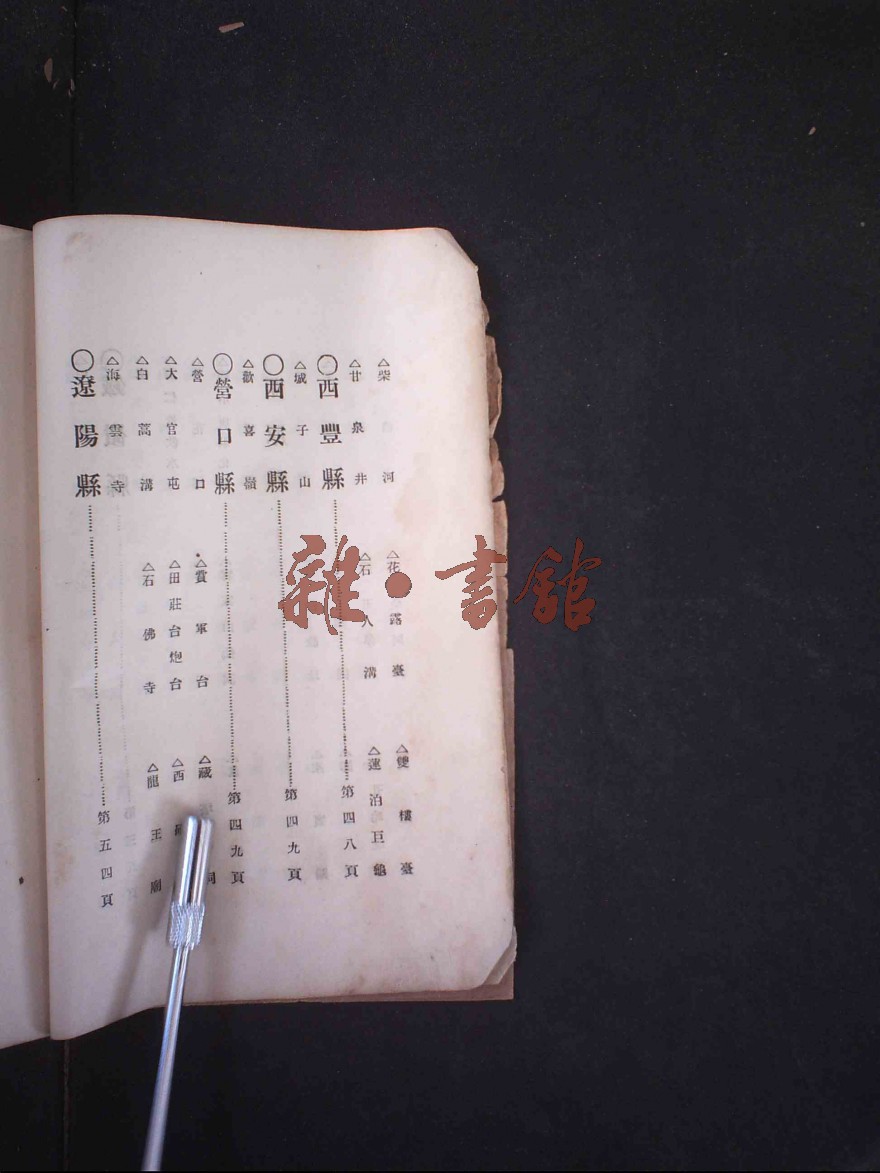 △柴河 △花露臺 △雙樓臺
△甘泉井 △石人溝 △蓮泊巨龜
○西豐縣……第四八頁
△城子山
○西安縣……第四九頁
△歡喜嶺
○營口縣……第四九頁
△營口 △賞軍台 △藏
△大官屯 △田莊台炮台 △西
△白蒿溝 △石佛寺 △龍王廟
△海雲寺
○遼陽縣……第五四頁
雜·書館